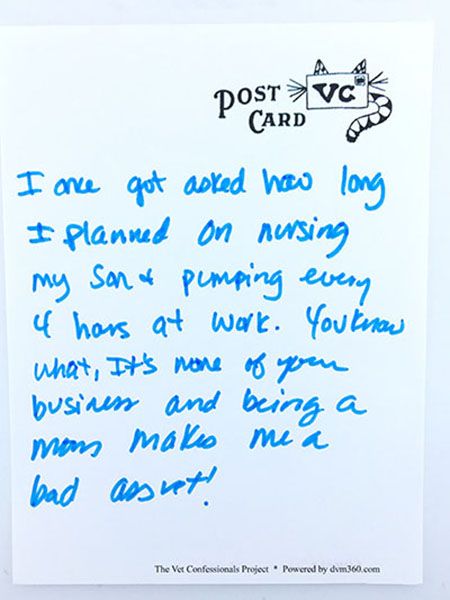 POST
CARD
VC
I once got asked how long
I planned on nursing
my Son & pumping every
4 hours at work. You know
what, It's none of your
business and being a
mom makes me a
bad ass vet!
The Vet Confessionals Project * Powered by dvm360.com